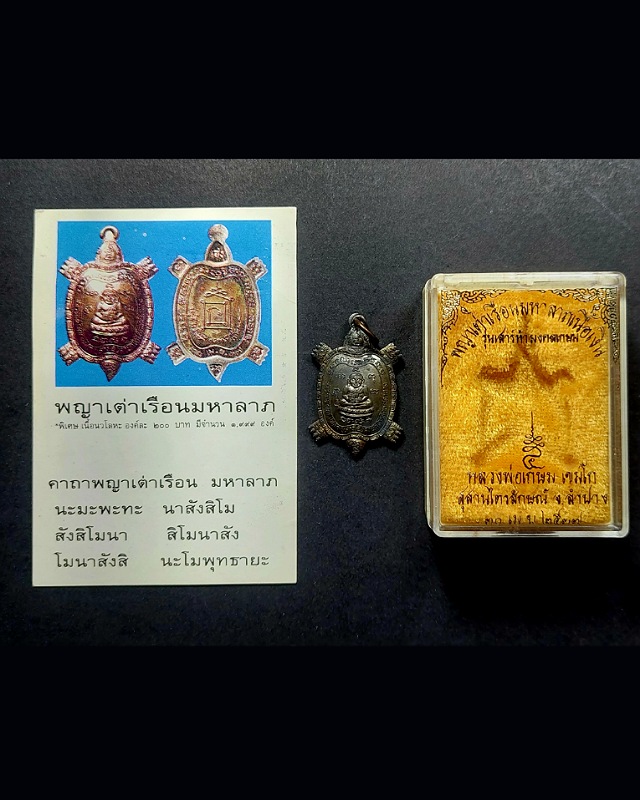 พญาเต่าเรือนมหาลาภ
*พิเศษ เนื้อนวโลหะ องค์ละ ๒๐๐ บาท มีจำนวน ๑,๙๙๙ องค์
คาถาพญาเต่าเรือน มหาลาภ
นะมะพะทะ นาสังสิโม
สังสิโมนา สิโมนาสัง
โมนาสังสิ นะโมพุทธายะ
พญาเต่าเรือนมหาลาภเนื้อเงิน
รุ่นเสาร์ห้ามงคลเกษม
หลวงพ่อเกษม เขมโก
สุสานไตรลักษณ์ จ.ลำปาง